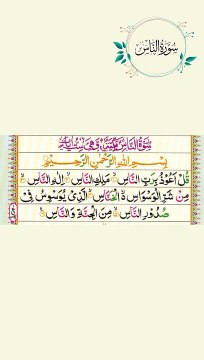 سورة الناس
بِسْمِ اللهِ الرَّحْمٰنِ الرَّحِيْمِ
قُلْ اَعُوْذُ بِرَبِّ النَّاسِ مَلِكِ النَّاسِ اِلٰهِ النَّاسِ
مِنْ شَرِّ الْوَسْوَاسِ الْخَنَّاسِ الَّذِىْ يُوَسْوِسُ فِىْ
صُدُوْرِ النَّاسِ مِنَ الْجِنَّةِ وَالنَّاسِ